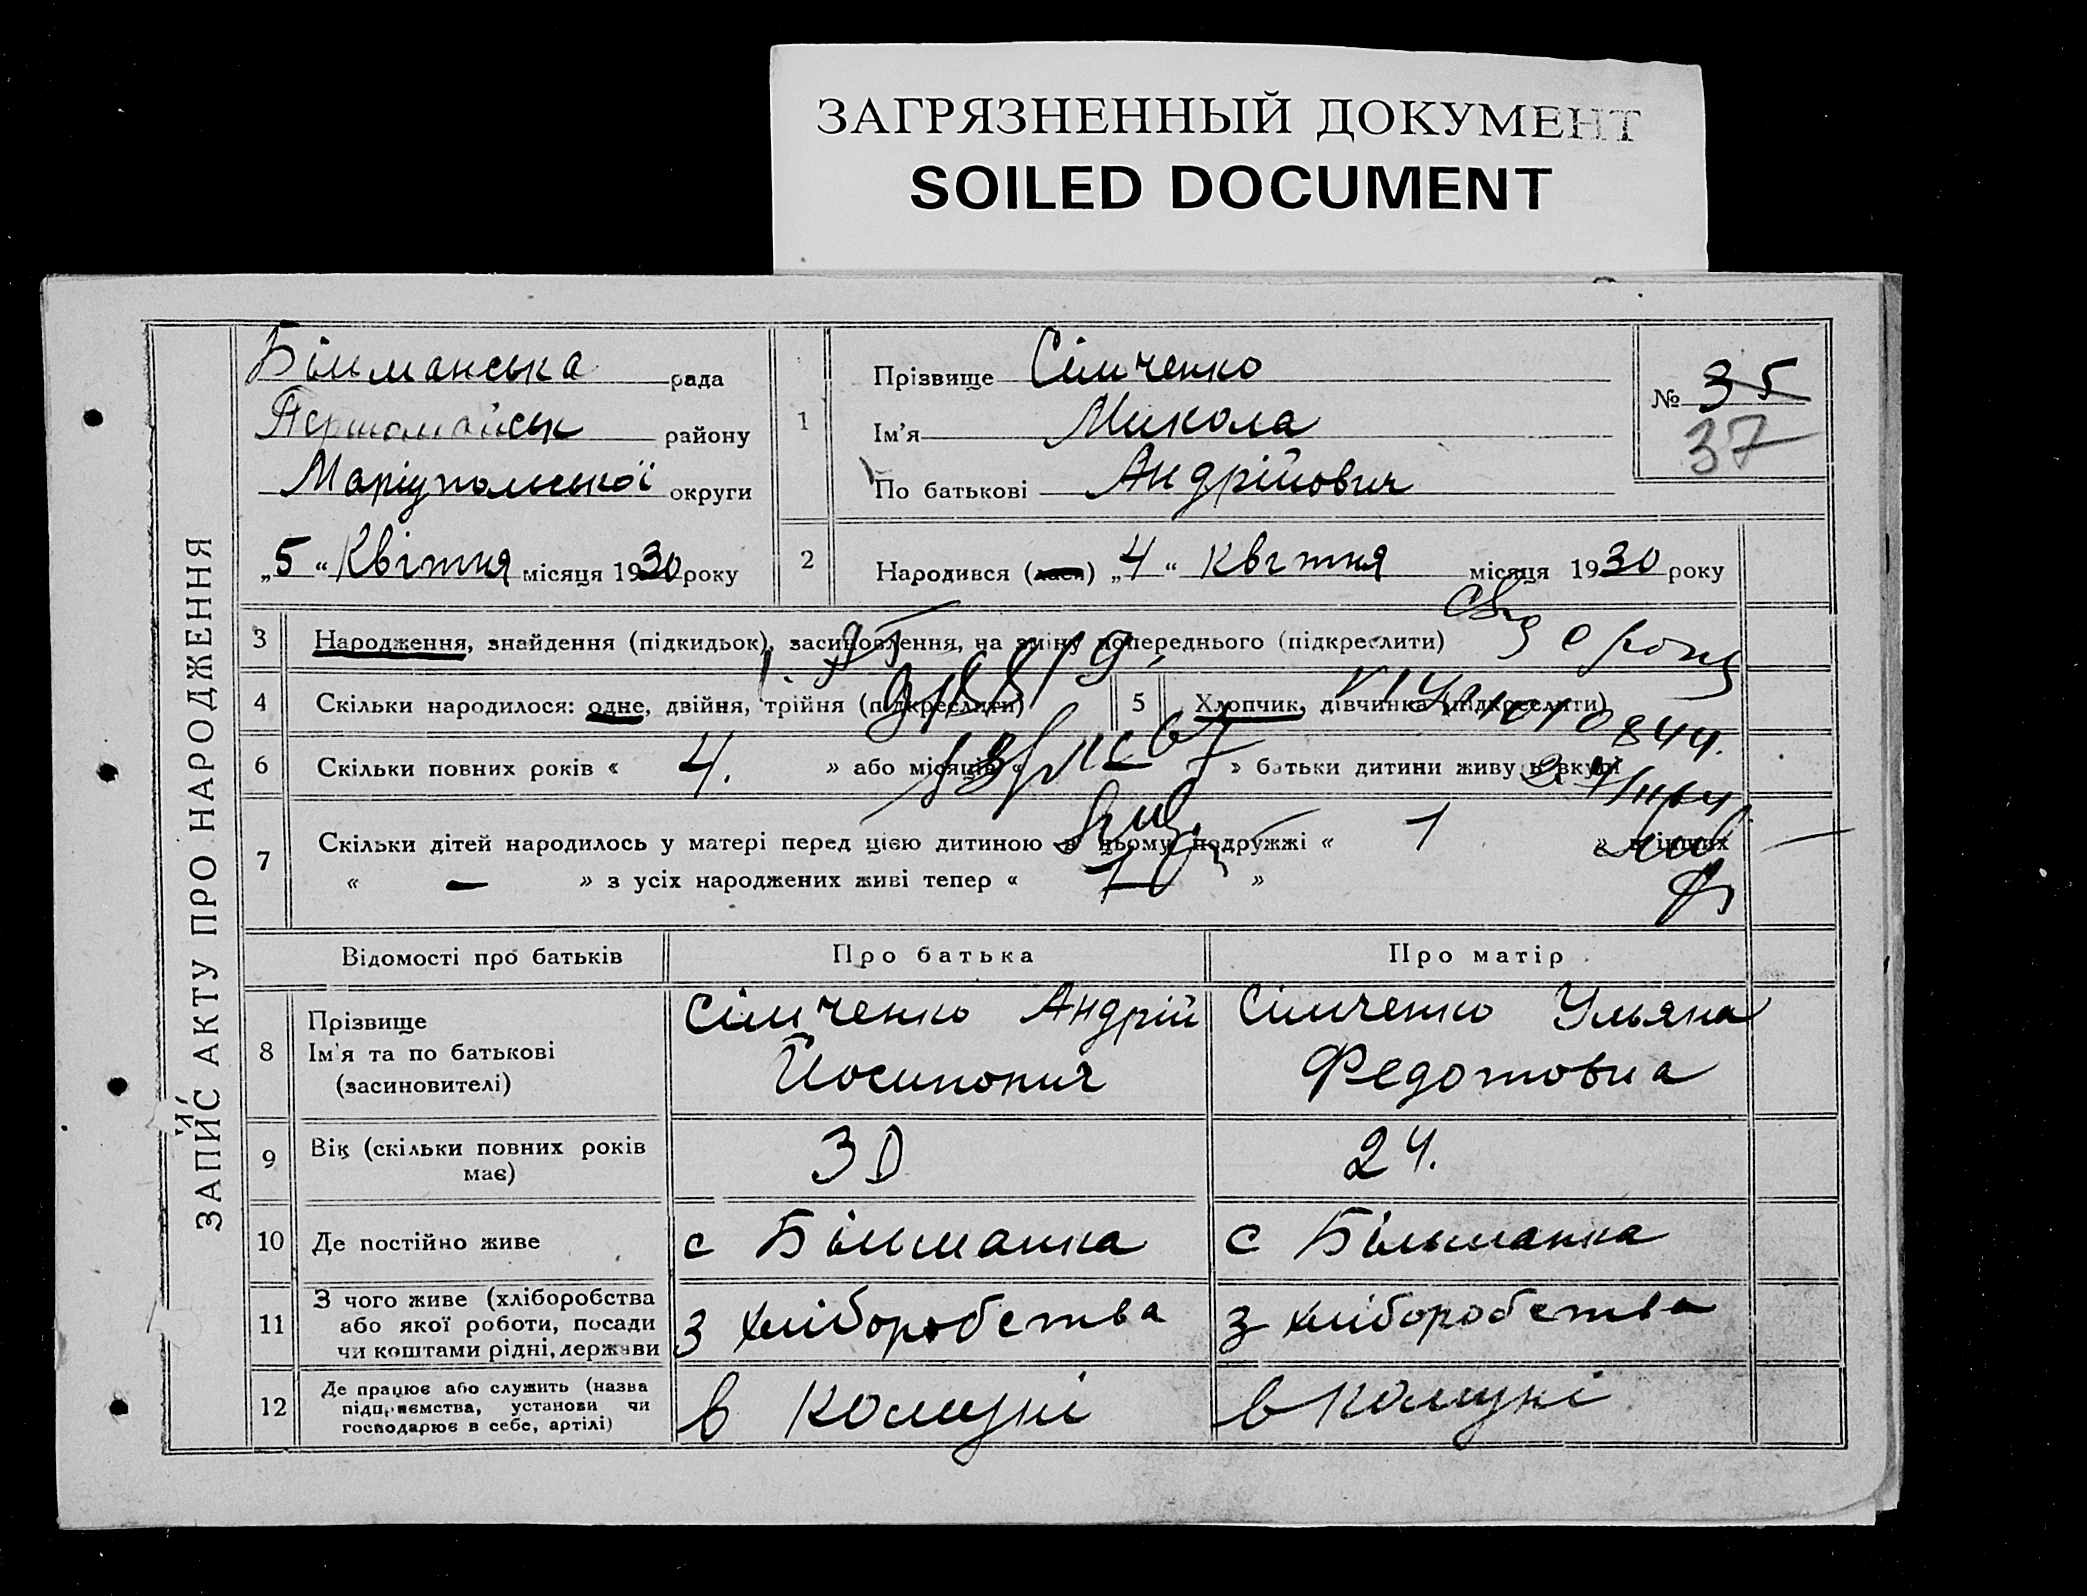 ЗАГРЯЗНЕННЫЙ ДОКУМЕНТ
SOILED DOCUMENT
ЗАПИС АКТУ ПРО НАРОДЖЕННЯ
Більманська рада
Першомайськ району
Маріупольської округи
„5“ Квітня місяця 1930 року
1
Прізвище Сімченко
Ім'я Микола
По батькові Андрійович
№ 35
37
2
Народився (лася) „4“ Квітня місяця 1930 року
3 Народження, знайдення (підкидьок), засиновлення, на зміну попереднього (підкреслити)
4 Скільки народилося: одне, двійня, трійня (підкреслити)
5 Хлопчик, дівчинка (підкреслити)
6 Скільки повних років « 4. » або місяців « » батьки дитини живуть вкупі
7 Скільки дітей народилось у матері перед цією дитиною в цьому подружжі « 1 » в інших
« — » з усіх народжених живі тепер « »
Відомості про батьків Про батька Про матір
8
Прізвище
Ім'я та по батькові
(засиновителі)
Сімченко Андрій
Йосипович
Сімченко Ульяна
Федотовна
9 Вік (скільки повних років
має)
30
24.
10 Де постійно живе
с Більманка
с Більманка
11
З чого живе (хліборобства
або якої роботи, посади
чи коштами рідні, держави
З хліборобства
З хліборобства
12
Де працює або служить (назва
підприємства, установи чи
господарює в себе, артілі)
в комуні
в комуні